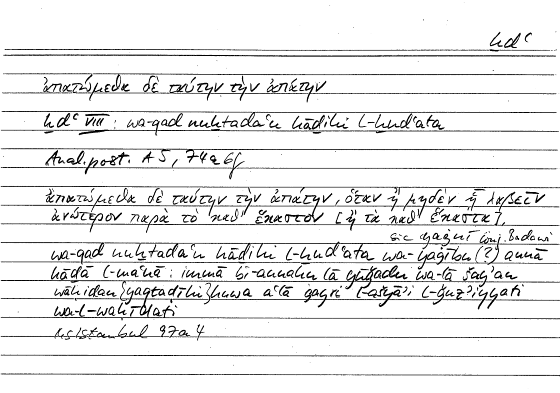 ḫdʿ
ἀπατώμεθα δὲ ταύτην τὴν ἀπάτην
ḫdʿ VIII : wa-qad nuḫtadaʿu hāḏihi l-ḫudʿata
Anal. post. A 5, 74a 6f
ἀπατώμεθα δὲ ταύτην τὴν ἀπάτην, ὅταν ἢ μηδὲν ᾖ λαβεῖν
ἀνώτερον παρὰ τὸ καθ' ἕκαστον [ἢ τὰ καθ' ἕκαστα],
sic conj. Badawi
wa-qad nuḫtadaʿu hāḏihi l-ḫudʿata (?) annā
hāḏā l-maʿnā : immā bi-annahu lā yūǧadu wa-lā šayʾan
wāḥidan huwa aʿlā ġayri l-ašyāʾi l-ǧuzʾiyyati
wa-l-waḥīdati
Ms Istanbul 97a 4